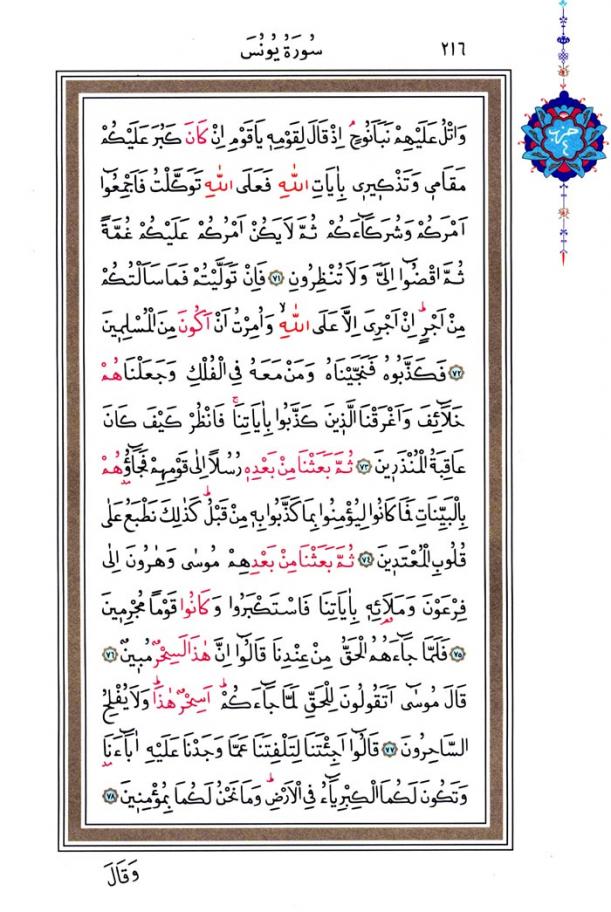 سُورَةُ يُونُسَ ٢١٦
حزب ٤
وَاتْلُ عَلَيْهِمْ نَبَاَ نُوحٍۘ اِذْ قَالَ لِقَوْمِه۪ يَاقَوْمِ اِنْ كَانَ كَبُرَ عَلَيْكُمْ
مَقَام۪ي وَتَذْك۪ير۪ي بِاٰيَاتِ اللّٰهِ فَعَلَى اللّٰهِ تَوَكَّلْتُ فَاَجْمِعُٓوا
اَمْرَكُمْ وَشُرَكَٓاءَكُمْ ثُمَّ لَا يَكُنْ اَمْرُكُمْ عَلَيْكُمْ غُمَّةً
ثُمَّ اقْضُٓوا اِلَيَّ وَلَا تُنْظِرُونِ ﴿٧١﴾ فَاِنْ تَوَلَّيْتُمْ فَمَا سَاَلْتُكُمْ
مِنْ اَجْرٍۜ اِنْ اَجْرِيَ اِلَّا عَلَى اللّٰهِۙ وَاُمِرْتُ اَنْ اَكُونَ مِنَ الْمُسْلِم۪ينَ
﴿٧٢﴾ فَكَذَّبُوهُ فَنَجَّيْنَاهُ وَمَنْ مَعَهُ فِي الْفُلْكِ وَجَعَلْنَاهُمْ
خَلَٓائِفَ وَاَغْرَقْنَا الَّذ۪ينَ كَذَّبُوا بِاٰيَاتِنَاۚ فَانْظُرْ كَيْفَ كَانَ
عَاقِبَةُ الْمُنْذَر۪ينَ ﴿٧٣﴾ ثُمَّ بَعَثْنَا مِنْ بَعْدِه۪ رُسُلًا اِلٰى قَوْمِهِمْ فَجَٓاؤُ۫هُمْ
بِالْبَيِّنَاتِ فَمَا كَانُوا لِيُؤْمِنُوا بِمَا كَذَّبُوا بِه۪ مِنْ قَبْلُۜ كَذٰلِكَ نَطْبَعُ عَلٰى
قُلُوبِ الْمُعْتَد۪ينَ ﴿٧٤﴾ ثُمَّ بَعَثْنَا مِنْ بَعْدِهِمْ مُوسٰى وَهٰرُونَ اِلٰى
فِرْعَوْنَ وَمَلَا۬ئِه۪ بِاٰيَاتِنَا فَاسْتَكْبَرُوا وَكَانُوا قَوْمًا مُجْرِم۪ينَ
﴿٧٥﴾ فَلَمَّا جَٓاءَهُمُ الْحَقُّ مِنْ عِنْدِنَا قَالُٓوا اِنَّ هٰذَا لَسِحْرٌ مُب۪ينٌ ﴿٧٦﴾
قَالَ مُوسٰٓى اَتَقُولُونَ لِلْحَقِّ لَمَّا جَٓاءَكُمْۜ اَسِحْرٌ هٰذَاۜ وَلَا يُفْلِحُ
السَّاحِرُونَ ﴿٧٧﴾ قَالُٓوا اَجِئْتَنَا لِتَلْفِتَنَا عَمَّا وَجَدْنَا عَلَيْهِ اٰبَٓاءَنَا
وَتَكُونَ لَكُمَا الْكِبْرِيَٓاءُ فِي الْاَرْضِۜ وَمَا نَحْنُ لَكُمَا بِمُؤْمِن۪ينَ ﴿٧٨﴾
وَقَالَ